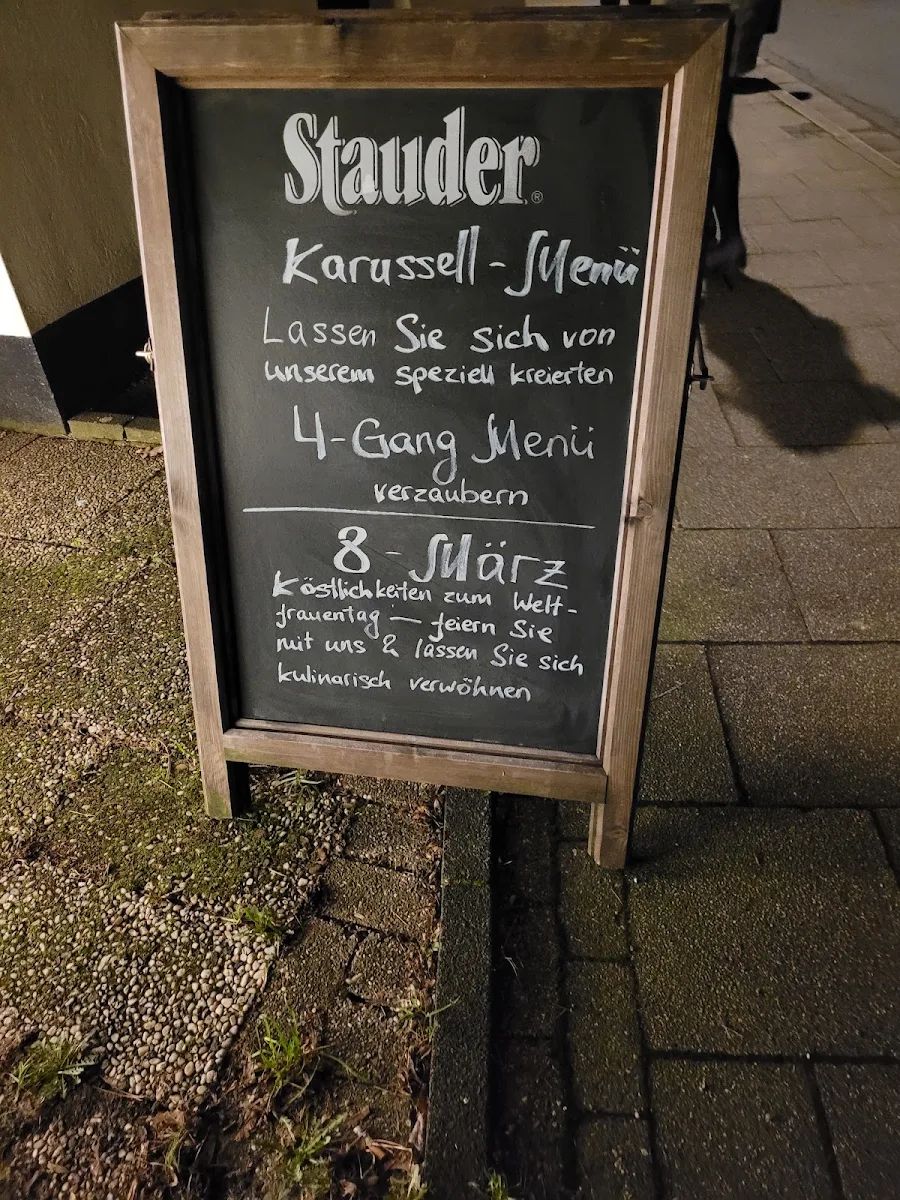 Stauder®
Karussell-Menü
Lassen Sie sich von
unserem speziell kreierten
4-Gang Menü
verzaubern
8-März
Köstlichkeiten zum Welt-
frauentag — feiern Sie
mit uns & lassen Sie sich
kulinarisch verwöhnen